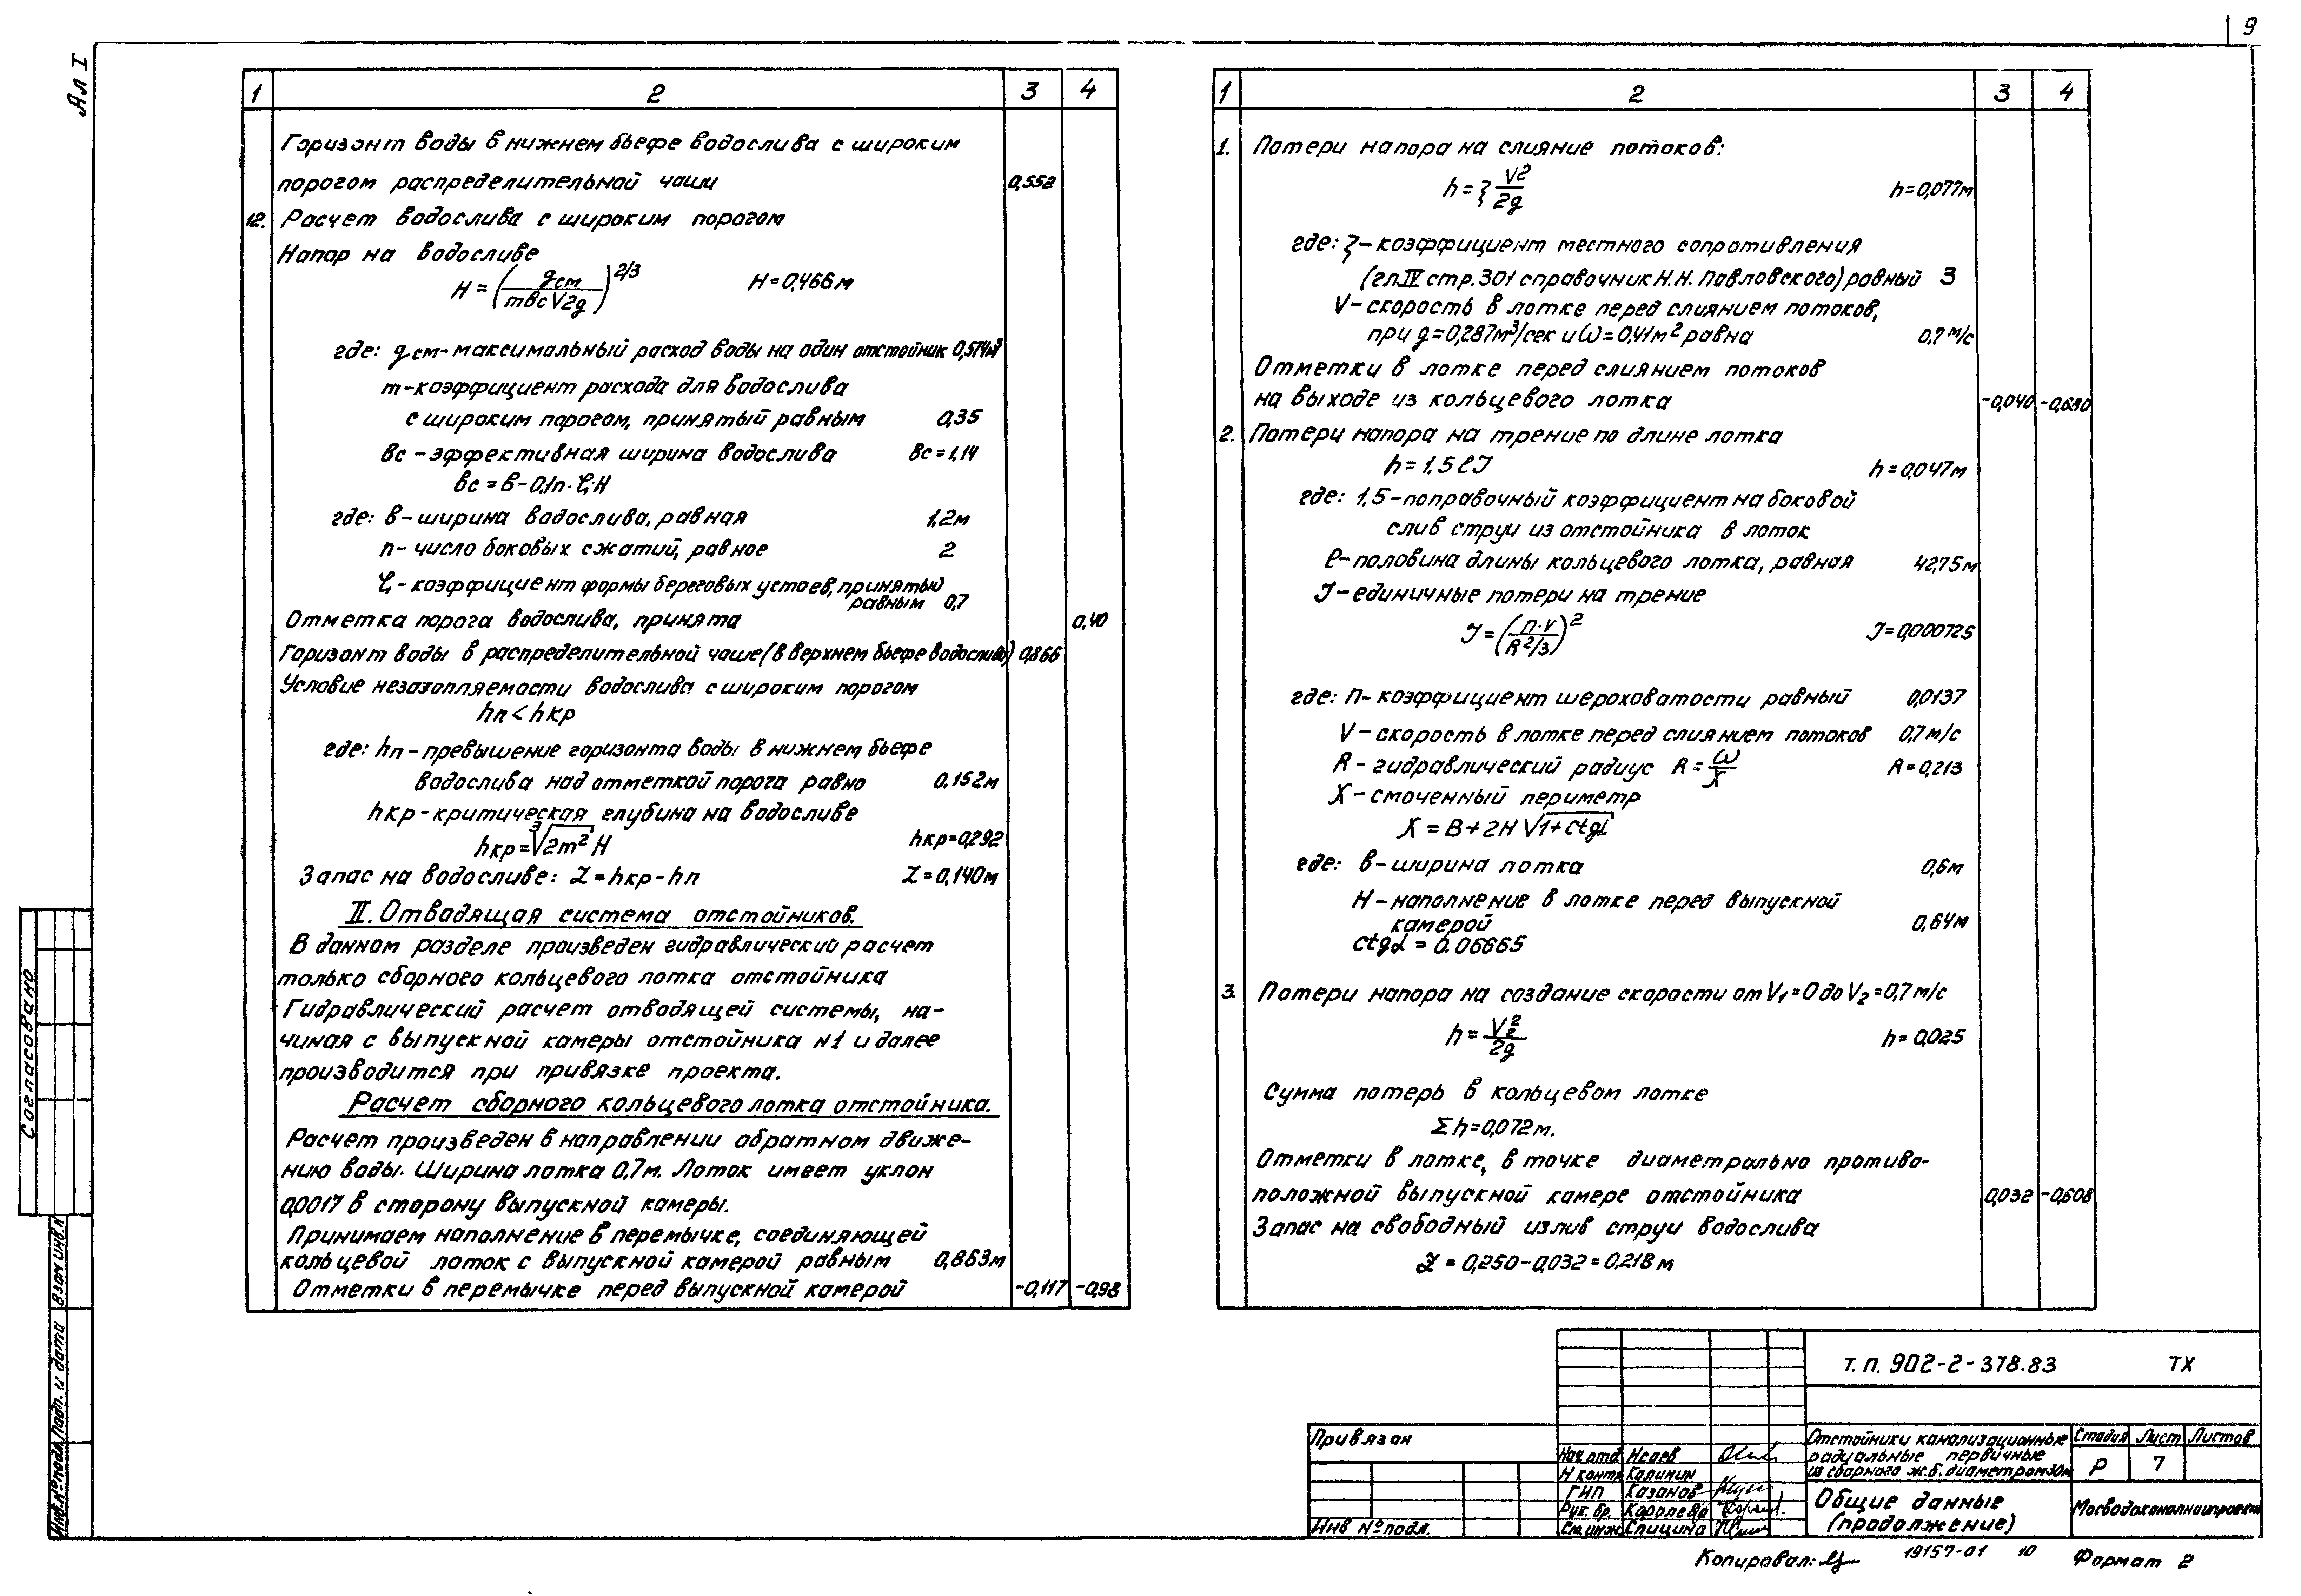 9
Ал I
1 2 3 4
Горизонт воды в нижнем бьефе водослива с широким
порогом распределительной чаши 0,552
12. Расчет водослива с широким порогом
Напор на водосливе
H = (qсм / mвс√2g)^2/3 H=0,466м
где: qсм-максимальный расход воды на один отстойник 0,574м³
m-коэффициент расхода для водослива
с широким порогом, принятый равным 0,35
вс-эффективная ширина водослива вс=1,14
вс=в-0,1n·ξ·H
где: в-ширина водослива, равная 1,2м
n-число боковых сжатий, равное 2
ξ-коэффициент формы береговых устоев, принятый
равным 0,7
Отметка порога водослива, принята 0,40
Горизонт воды в распределительной чаше(в верхнем бьефе водослива) 0,866
Условие незатопляемости водослива с широким порогом
hп<hкр
где: hп-превышение горизонта воды в нижнем бьефе
водослива над отметкой порога равно 0,152м
hкр-критическая глубина на водосливе
hкр=³√2m² H hкр=0,292
Запас на водосливе: Z=hкр-hп Z=0,140м
II. Отводящая система отстойников.
В данном разделе произведен гидравлический расчет
только сборного кольцевого лотка отстойника
Гидравлический расчет отводящей системы, на-
чиная с выпускной камеры отстойника №1 и далее
производится при привязке проекта.
Расчет сборного кольцевого лотка отстойника.
Расчет произведен в направлении обратном движе-
нию воды. Ширина лотка 0,7м. Лоток имеет уклон
0,0017 в сторону выпускной камеры.
Принимаем наполнение в перемычке, соединяющей
кольцевой лоток с выпускной камерой равным 0,863м
Отметки в перемычке перед выпускной камерой -0,117 -0,98
1 2 3 4
1. Потери напора на слияние потоков:
h=ξ V²/2g h=0,077м
где: ξ-коэффициент местного сопротивления
(гл.IV стр.301 справочник Н.Н. Павловского) равный 3
V-скорость в лотке перед слиянием потоков,
при q=0,287м³/сек и ω=0,41м² равна 0,7м/с
Отметки в лотке перед слиянием потоков
на выходе из кольцевого лотка -0,040 -0,680
2. Потери напора на трение по длине лотка
h=1,5ℓJ h=0,047м
где: 1,5-поправочный коэффициент на боковой
слив струи из отстойника в лоток
ℓ-половина длины кольцевого лотка, равная 42,75м
J-единичные потери на трение
J=(n·v / R^2/3)² J=0,000725
где: n-коэффициент шероховатости равный 0,0137
V-скорость в лотке перед слиянием потоков 0,7м/с
R-гидравлический радиус R=ω/X R=0,213
X-смоченный периметр
X=B+2H√1+ctgα
где: в-ширина лотка 0,6м
H-наполнение в лотке перед выпускной
камерой 0,64м
ctgα=0.06665
3. Потери напора на создание скорости от V₁=0 до V₂=0,7м/с
h=V₂²/2g h=0,025
Сумма потерь в кольцевом лотке
Σh=0,072м.
Отметки в лотке, в точке диаметрально противо-
положной выпускной камере отстойника 0,032 -0,608
Запас на свободный излив струи водослива
Z=0,250-0,032=0,218м
Согласовано
Взам инв.№
Подп. и дата
Инв.№ подл.
Т.П. 902-2-378.83 ТХ
Привязан
Инв № подл.
Нач отд Исаев
Н контр Калинин
ГИП Казанов
Рук. бр. Королева
Ст.инж. Спицина
Отстойники канализационные
радиальные первичные
из сборного ж.б. диаметром 30м
Стадия Лист Листов
Р 7
Общие данные
(продолжение)
Мосводоканалниипроект
Копировал: 19157-01 10 Формат 2